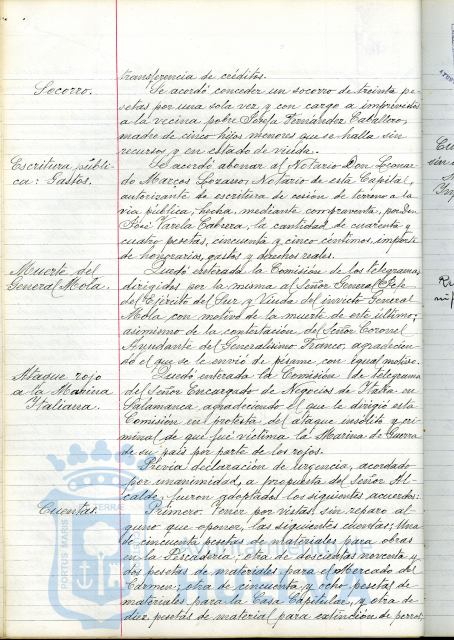 transferencia de créditos.
Socorro.
Se acordó conceder un socorro de treinta pe-
setas por una sola vez y con cargo a imprevistos
a la vecina pobre Josefa Fernández Caballero,
madre de cinco hijos menores que se halla sin
recursos y en estado de viuda.
Escritura públi-
ca: Gastos.
Se acordó abonar al Notario Don Leonar-
do Marcos Lozano, Notario de esta Capital,
autorizante de escritura de cesión de terreno a la
vía pública, hecha, mediante compraventa, por Don
José Varela Cabrera, la cantidad de cuarenta y
cuatro pesetas, cincuenta y cinco céntimos, importe
de honorarios, gastos y derechos reales.
Muerte del
General Mola.
Quedó enterada la Comisión de los telegramas
dirigidos por la misma al Señor General Jefe
del Ejército del Sur y Viuda del invicto General
Mola con motivo de la muerte de este último;
asimismo de la contestación del Señor Coronel
Ayudante del Generalísimo Franco, agradecien-
do el que se le envió de pésame, con igual motivo.
Ataque rojo
a la Marina
Italiana.
Quedó enterada la Comisión de telegrama
del Señor Encargado de Negocios de Italia en
Salamanca, agradeciendo el que le dirigió esta
Comisión en protesta del ataque insólito y cri-
minal de que fué víctima la Marina de Guerra
de su país por parte de los rojos.
Previa declaración de urgencia, acordado
por unanimidad, a propuesta del Señor Al-
calde, fueron adoptados los siguientes acuerdos:
Cuentas.
Primero: Tener por vistas, sin reparo al-
guno que oponer, las siguientes cuentas: Una
de cincuenta pesetas de materiales para obras
en la Pescadería; otra de doscientas noventa y
dos pesetas de materiales para el Mercado del
Carmen; otra de cincuenta y ocho pesetas de
materiales para la Casa Capitular, y otra de
diez pesetas de material para extinción de perros,
PORTUS MARIS
TERRAE